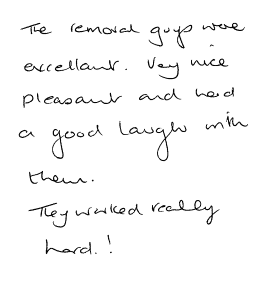 The removal guys were
excellant. Very nice
pleasant and had
a good laugh with
them.
They worked really
hard.!